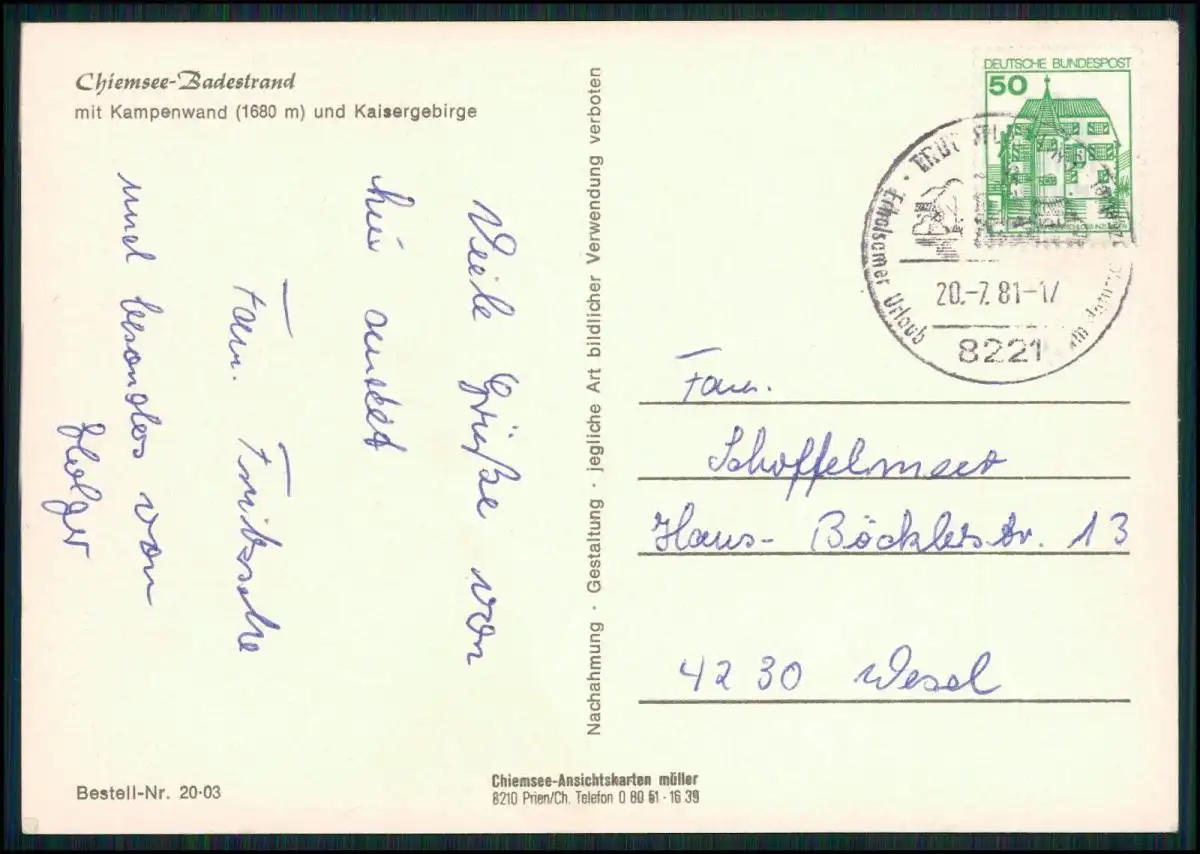 Chiemsee-Badestrand
mit Kampenwand (1680 m) und Kaisergebirge
Viele Grüße von
hier sendet
Fam. Fritzsche
und besonders von
Holger
Bestell-Nr. 20-03
Nachahmung · Gestaltung · jegliche Art bildlicher Verwendung verboten
Chiemsee-Ansichtskarten müller
8210 Prien/Ch. Telefon 0 80 51 - 16 39
DEUTSCHE BUNDESPOST
50
Erholsamer Urlaub
20.-7.81-17
8221
Fam.
Schoffelmeer
Hans-Böcklerstr. 13
4230 Wesel